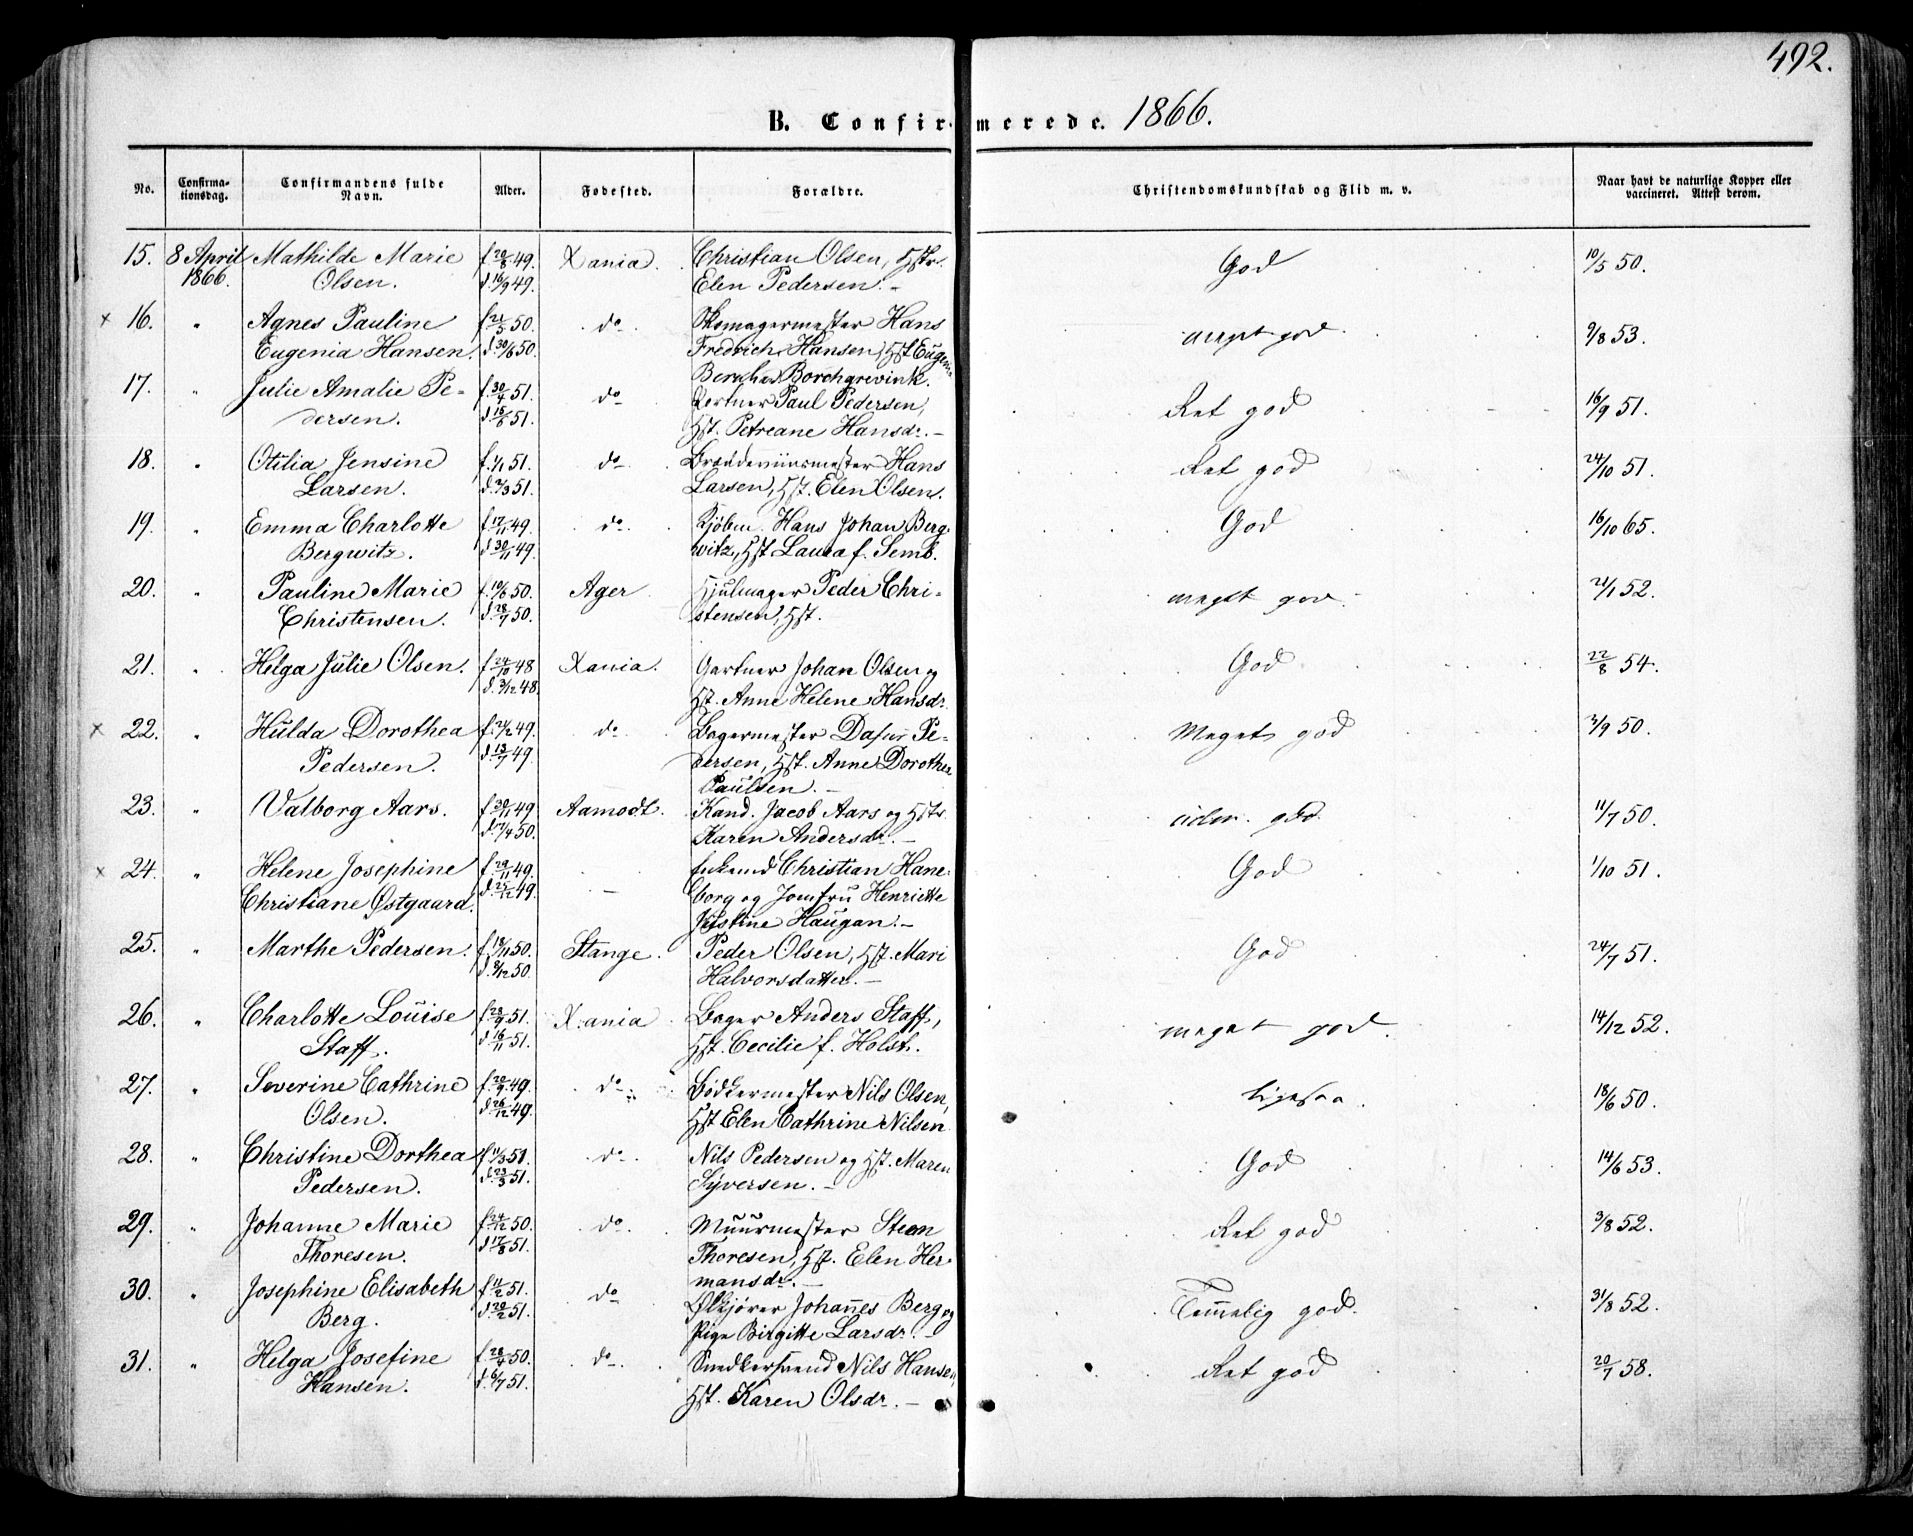 492.
B. Confirmerede. 1866.
No. Confirmationsdag. Confirmandens fulde Navn. Alder. Fødested. Forældre. Christendomskundskab og Flid m. v. Naar havt de naturlige Kopper eller vaccineret. Attest derom.
15. 8 April Mathilde Marie f. 20/8 49. Xania. Christian Olsen, Hstr. God 10/5 50.
1866. Olsen. d. 16/9 49. Elen Pedersen. –
× 16. " Agnes Pauline f. 21/5 50. do Skomagermester Hans meget god. 9/8 53.
Eugenia Hansen. d. 30/6 50. Fredrich Hansen, Hst. Eugenia
Borchgrevink.
17. " Julie Amalie Pe- f. 30/4 51. do Paul Pedersen, Ret god 16/9 51.
dersen. d. 15/6 51. Hst. Petreane Hansdr. –
18. " Otilia Jensine f. 1/1 51. do Hans Ret god 24/10 51.
Larsen. d. 2/3 51. Larsen, Hst. Elen Olsen.
19. " Emma Charlotte f. 17/11 49. do. Kjøbm. Hans Johan Berg- God 16/10 65.
Bergwitz. d. 30/11 49. witz, Hst. Laura f. Semb.
20. " Pauline Marie f. 10/6 50. Ager Hjulmager Peder Chri- meget god. 21/1 52.
Christensen. d. 28/7 50. stensen, Hst.
21. " Helga Julie Olsen. f. 24/10 48 Xania. Gartner Johan Olsen og God 22/8 54.
d. 3/12 48. Hst. Anne Helene Hansdr.
× 22. " Hulda Dorothea f. 21/2 49. do Bagermester Pe- Meget god 2/9 50.
Pedersen. d. 13/7 49. dersen, Hst. Anne Dorothea
Paulsen. –
23. " Valborg Aars. f. 30/11 49. Aamodt. Kand. Jacob Aars og Hstr. god. 11/7 50.
d. 17/4 50. Karen Andersdr. –
× 24. " Helene Josephine f. 29/11 49. – Christian Hane- God 1/10 51.
Christiane Østgaard. d. 25/12 49. borg og Jomfru Henriette
Haugan. –
25. " Marthe Pedersen. f. 18/11 50. Stange. Peder Olsen, Hst. Mari God 24/7 51.
d. 8/12 50. Halvorsdatter. –
26. " Charlotte Louise f. 28/9 51. Xania Bager Anders Staff, meget god. 14/12 52.
Staff. d. 16/11 51. Hst. Cecilie f. Holst.
27. " Severine Cathrine f. 20/9 49. do Bødkermester Nils Olsen, ligesaa. 18/6 50.
Olsen. d. 26/12 49. Hst Elen Cathrine Nilsen
28. " Christine Dorthea f. 1/3 51. do Nils Pedersen og Hst. Maren God 14/6 53.
Pedersen. d. 23/3 51. Syversen. –
29. " Johanne Marie f. 24/12 50. do Muurmester Steen Ret god 3/8 52.
Thoresen. d. 17/8 51. Thoresen, Hst. Elen Her-
mansdr. –
30. " Josephine Elisabeth f. 11/2 51. do Ølkjører Johannes Berg og Temmelig god. 31/8 52.
Berg. d. 20/2 51. Pige Birgitte Larsdr. –
31. " Helga Josefine f. 28/4 50. do Snedkersvend Nils Hansen, Ret god 20/7 58.
Hansen. d. 6/7 51. Hst. Karen Olsdr. –